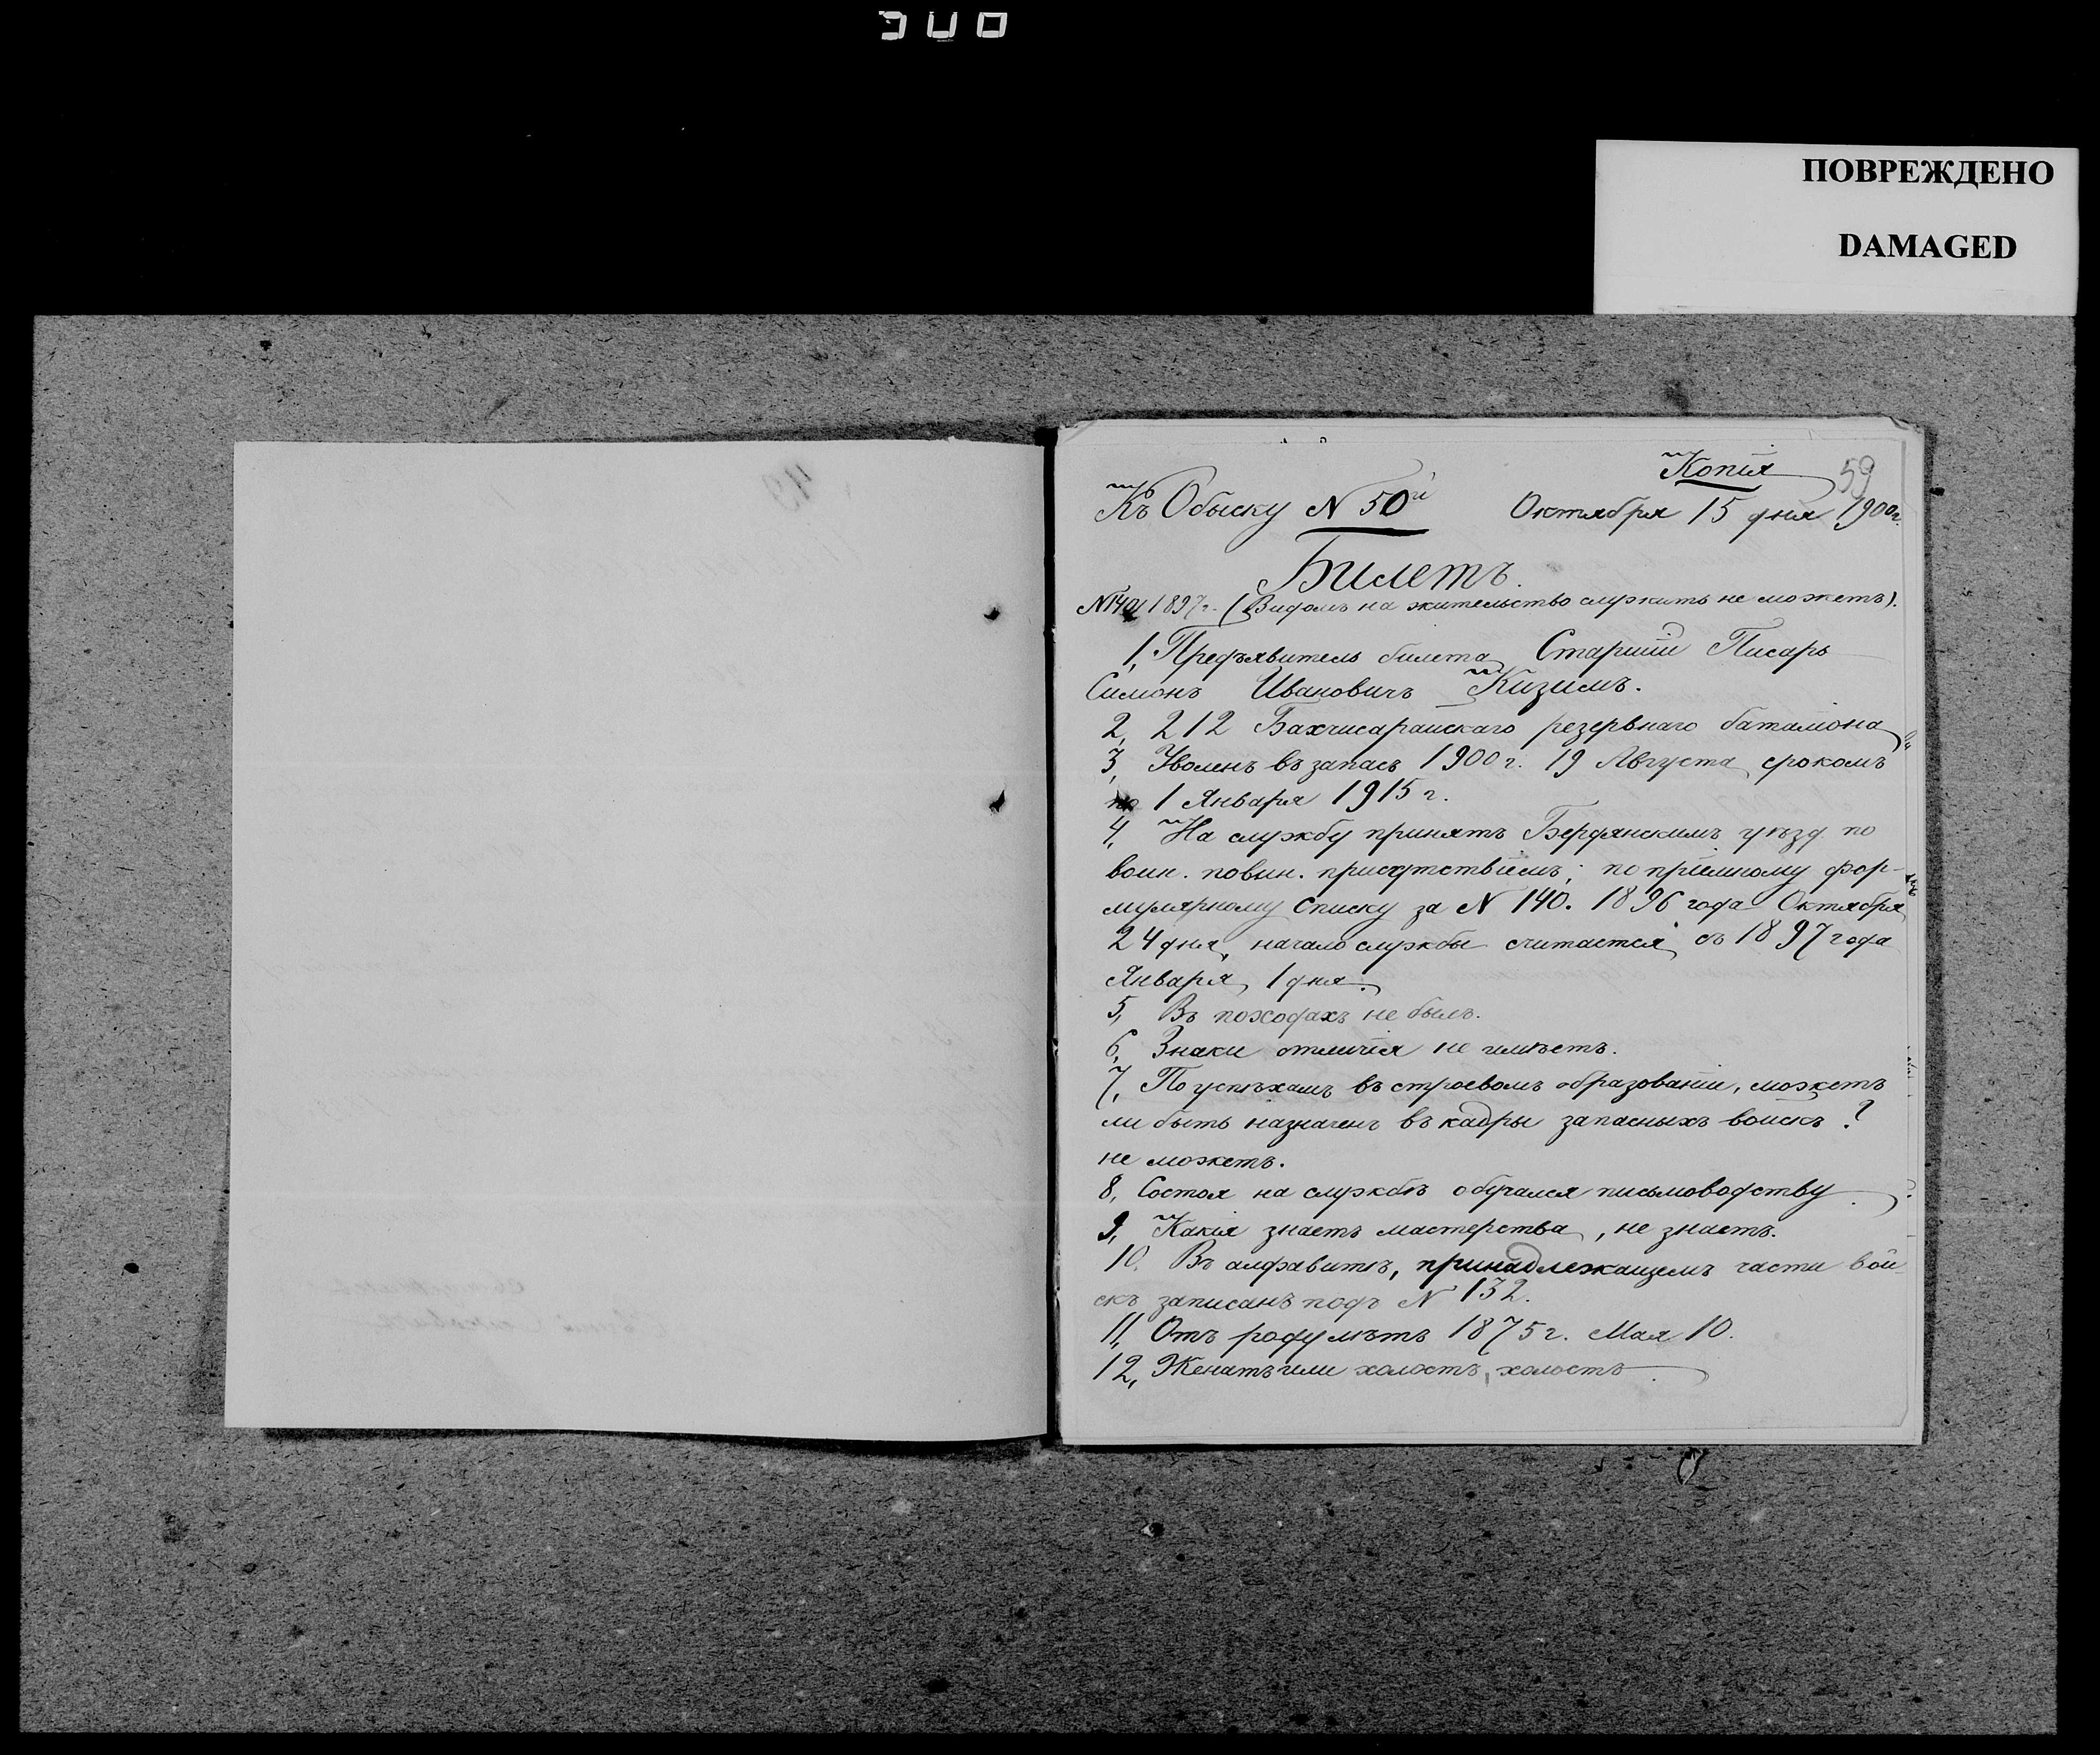 ПОВРЕЖДЕНО
DAMAGED
Копія
59
Къ Обыску N 50й Октября 15 дня 1900г.
Билетъ.
N140/1897г. (Видомъ на жительство служить не можетъ).
1, Предъявитель билета Старшій Писарь
Симонъ Ивановичъ Кизимъ.
2, 212 Бахчисарайскаго резервнаго баталіона
3, Уволенъ въ запасъ 1900 г. 19 Августа срокомъ
по 1 Января 1915 г.
4, На службу принятъ Бердянскимъ уѣзд. по
воин. повин. присутствіемъ; по пріемному фор-
мулярному списку за N 140. 1896 года Октября
24 дня, начало службы считается съ 1897 года
Января 1 дня.
5, Въ походахъ не былъ.
6, Знаки отличія не имѣетъ.
7, По успѣхамъ въ строевомъ образованіи, можетъ
ли быть назначенъ въ кадры запасныхъ войскъ?
не можетъ.
8, Состоя на службѣ обучался письмоводству.
9, Какія знаетъ мастерства, не знаетъ.
10. Въ алфавитѣ, принадлежащемъ части вой-
скъ записанъ подъ N 132.
11, Отъ роду лѣтъ 1875 г. Мая 10.
12, Женатъ или холостъ, холостъ.